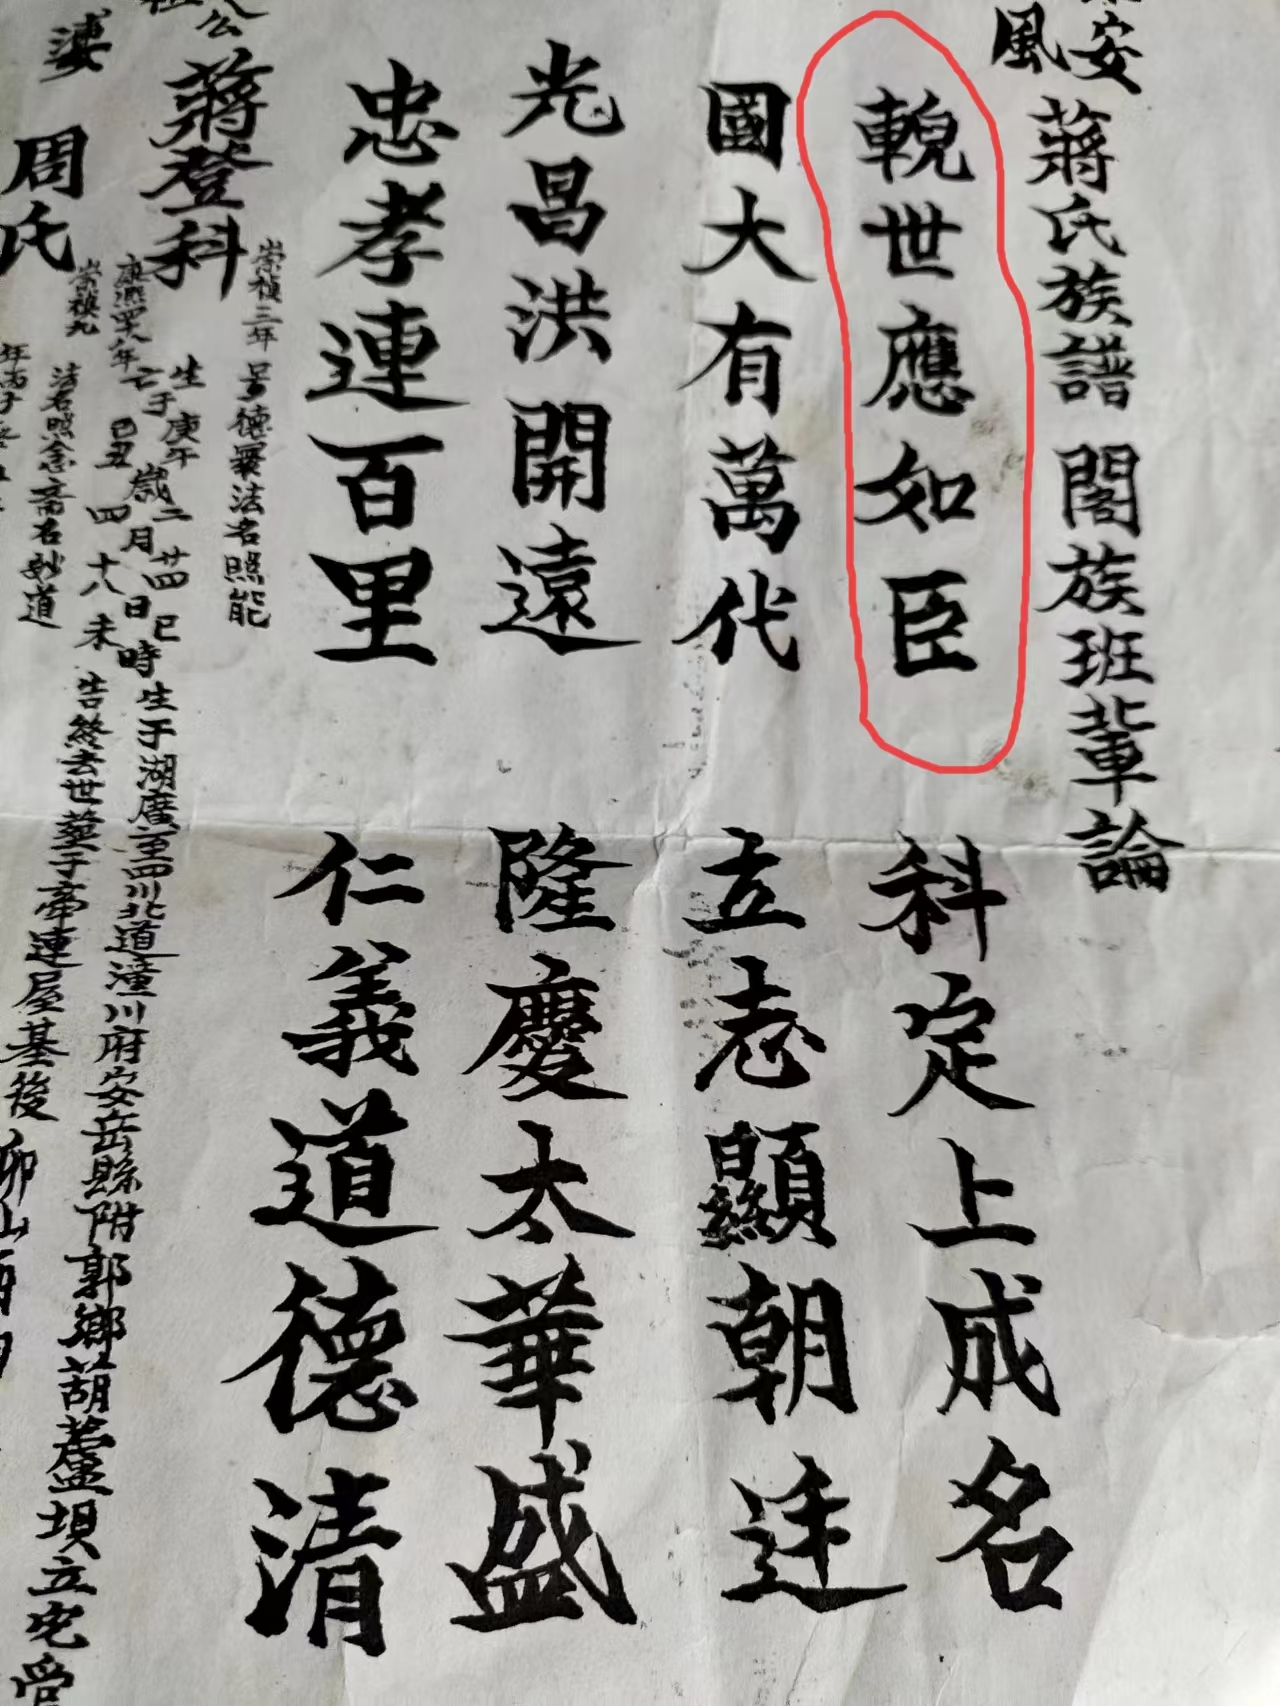 安
風
蔣氏族譜 閣族班輩論
輗世應如臣 科定上成名
國大有萬代 立志顯朝廷
光昌洪開遠 隆慶太華盛
忠孝連百里 仁義道德清
公
蔣登科
崇禎三年
號德 法名照能
生庚午歲二月廿四日巳時生于湖廣至四川北道潼川府安岳縣附郭鄉葫蘆垻立宅
康熙四八年
亡于己丑四月十八日未時告終去世葬于帝連屋基後
婆
周氏
崇禎九
年丙子
法名照念齋名妙道